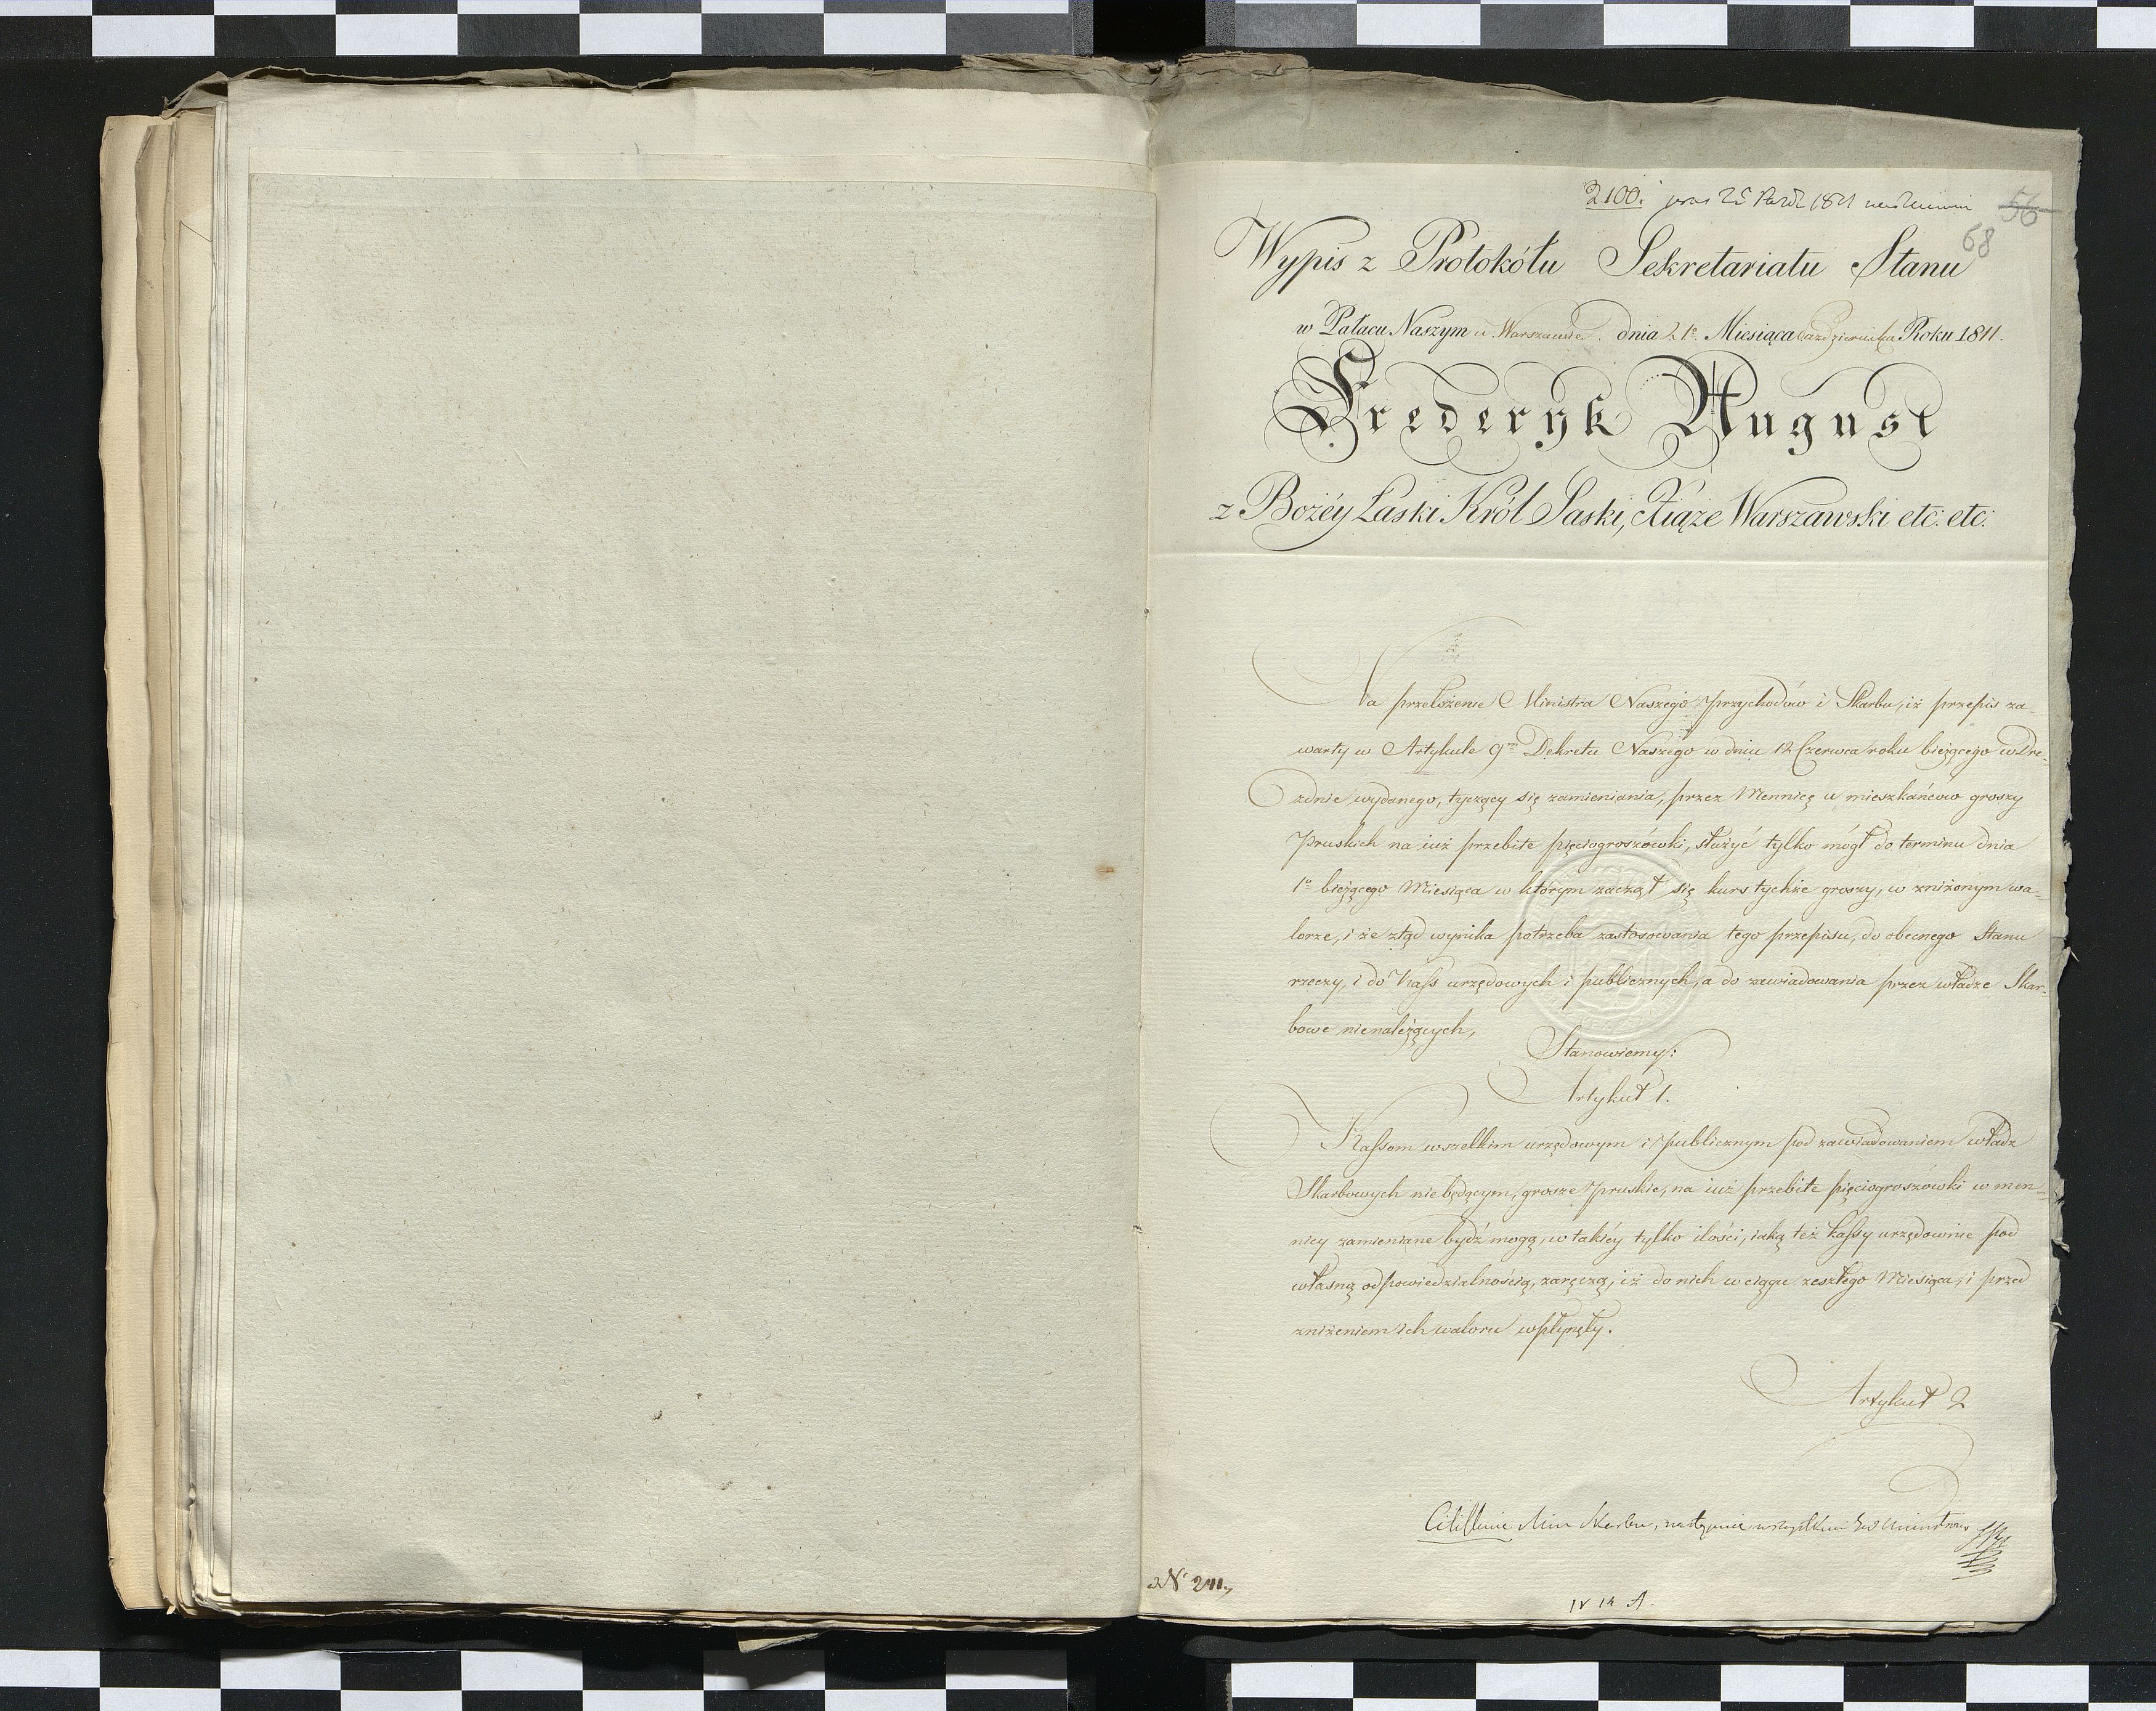 2100. 25 Paźdz 1811
56
68
Wypis z Protokółu Sekretariatu Stanu
w Pałacu Naszym w Warszawie dnia 21º Miesiąca Października Roku 1811.
Frederyk August
z Bożéy Łaski Król Saski, Xiąże Warszawski etc. etc.
Na przełożenie Ministra Naszego Przychodów i Skarbu, iż przepis za-
warty w Artykule 9m Dekretu Naszego w dniu 12 Czerwca roku bieżącego w Dre-
znie wydanego, tyczący się zamieniania, przez Mennicę u mieszkańców groszy
Pruskich na iuż przebite pięciogroszówki, służyć tylko mógł do terminu dnia
1º bieżącego Miesiąca w którym zaczął się kurs tychże groszy, w zniżonym wa-
lorze, i że ztąd wynika potrzeba zastosowania tego przepisu, do obecnego Stanu
rzeczy, i do Kass urzędowych i publicznych, a do zawiadowania przez władze Skar-
bowe nienależących,
Stanowiemy:
Artykuł 1.
Kassom wszelkim urzędowym i publicznym pod zawiadowaniem władz
Skarbowych nie będącym, grosze Pruskie, na iuż przebite pięciogroszówki w men-
nicy zamieniane bydź mogą, w takiéy tylko ilości, iaką też kassy urzędownie pod
własną odpowiedzialnością, zaręczą, iż do nich w ciągu zeszłego Miesiąca, i przed
zniżeniem ich waloru wpłynęły.
Artykuł 2
Min Skarbu, wszystkim
N° 241.